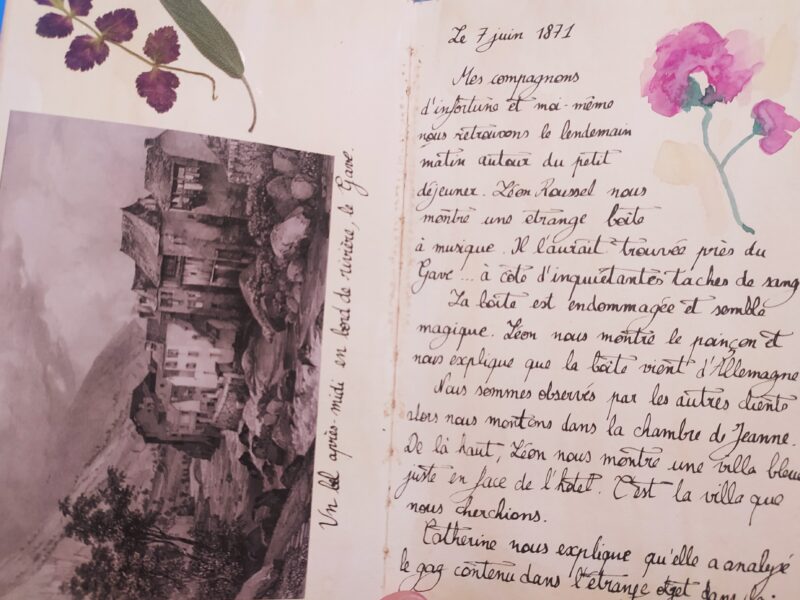 Un bel après-midi en bord de rivière, le Gave.
Le 7 juin 1871
Mes compagnons
d'infortune et moi-même
nous retrouvons le lendemain
matin autour du petit
déjeuner. Léon Roussel nous
montre une étrange boîte
à musique. Il l'aurait trouvée près du
Gave... à côté d'inquiétantes taches de sang
La boîte est endommagée et semble
magique. Léon nous montre le poinçon et
nous explique que la boîte vient d'Allemagne
Nous sommes observés par les autres clients
alors nous montons dans la chambre de Jeanne.
De là haut, Léon nous montre une villa bleue
juste en face de l'hôtel. C'est la villa que
nous cherchions.
Catherine nous explique qu'elle a analysé
le gaz contenu dans l'étrange objet dans